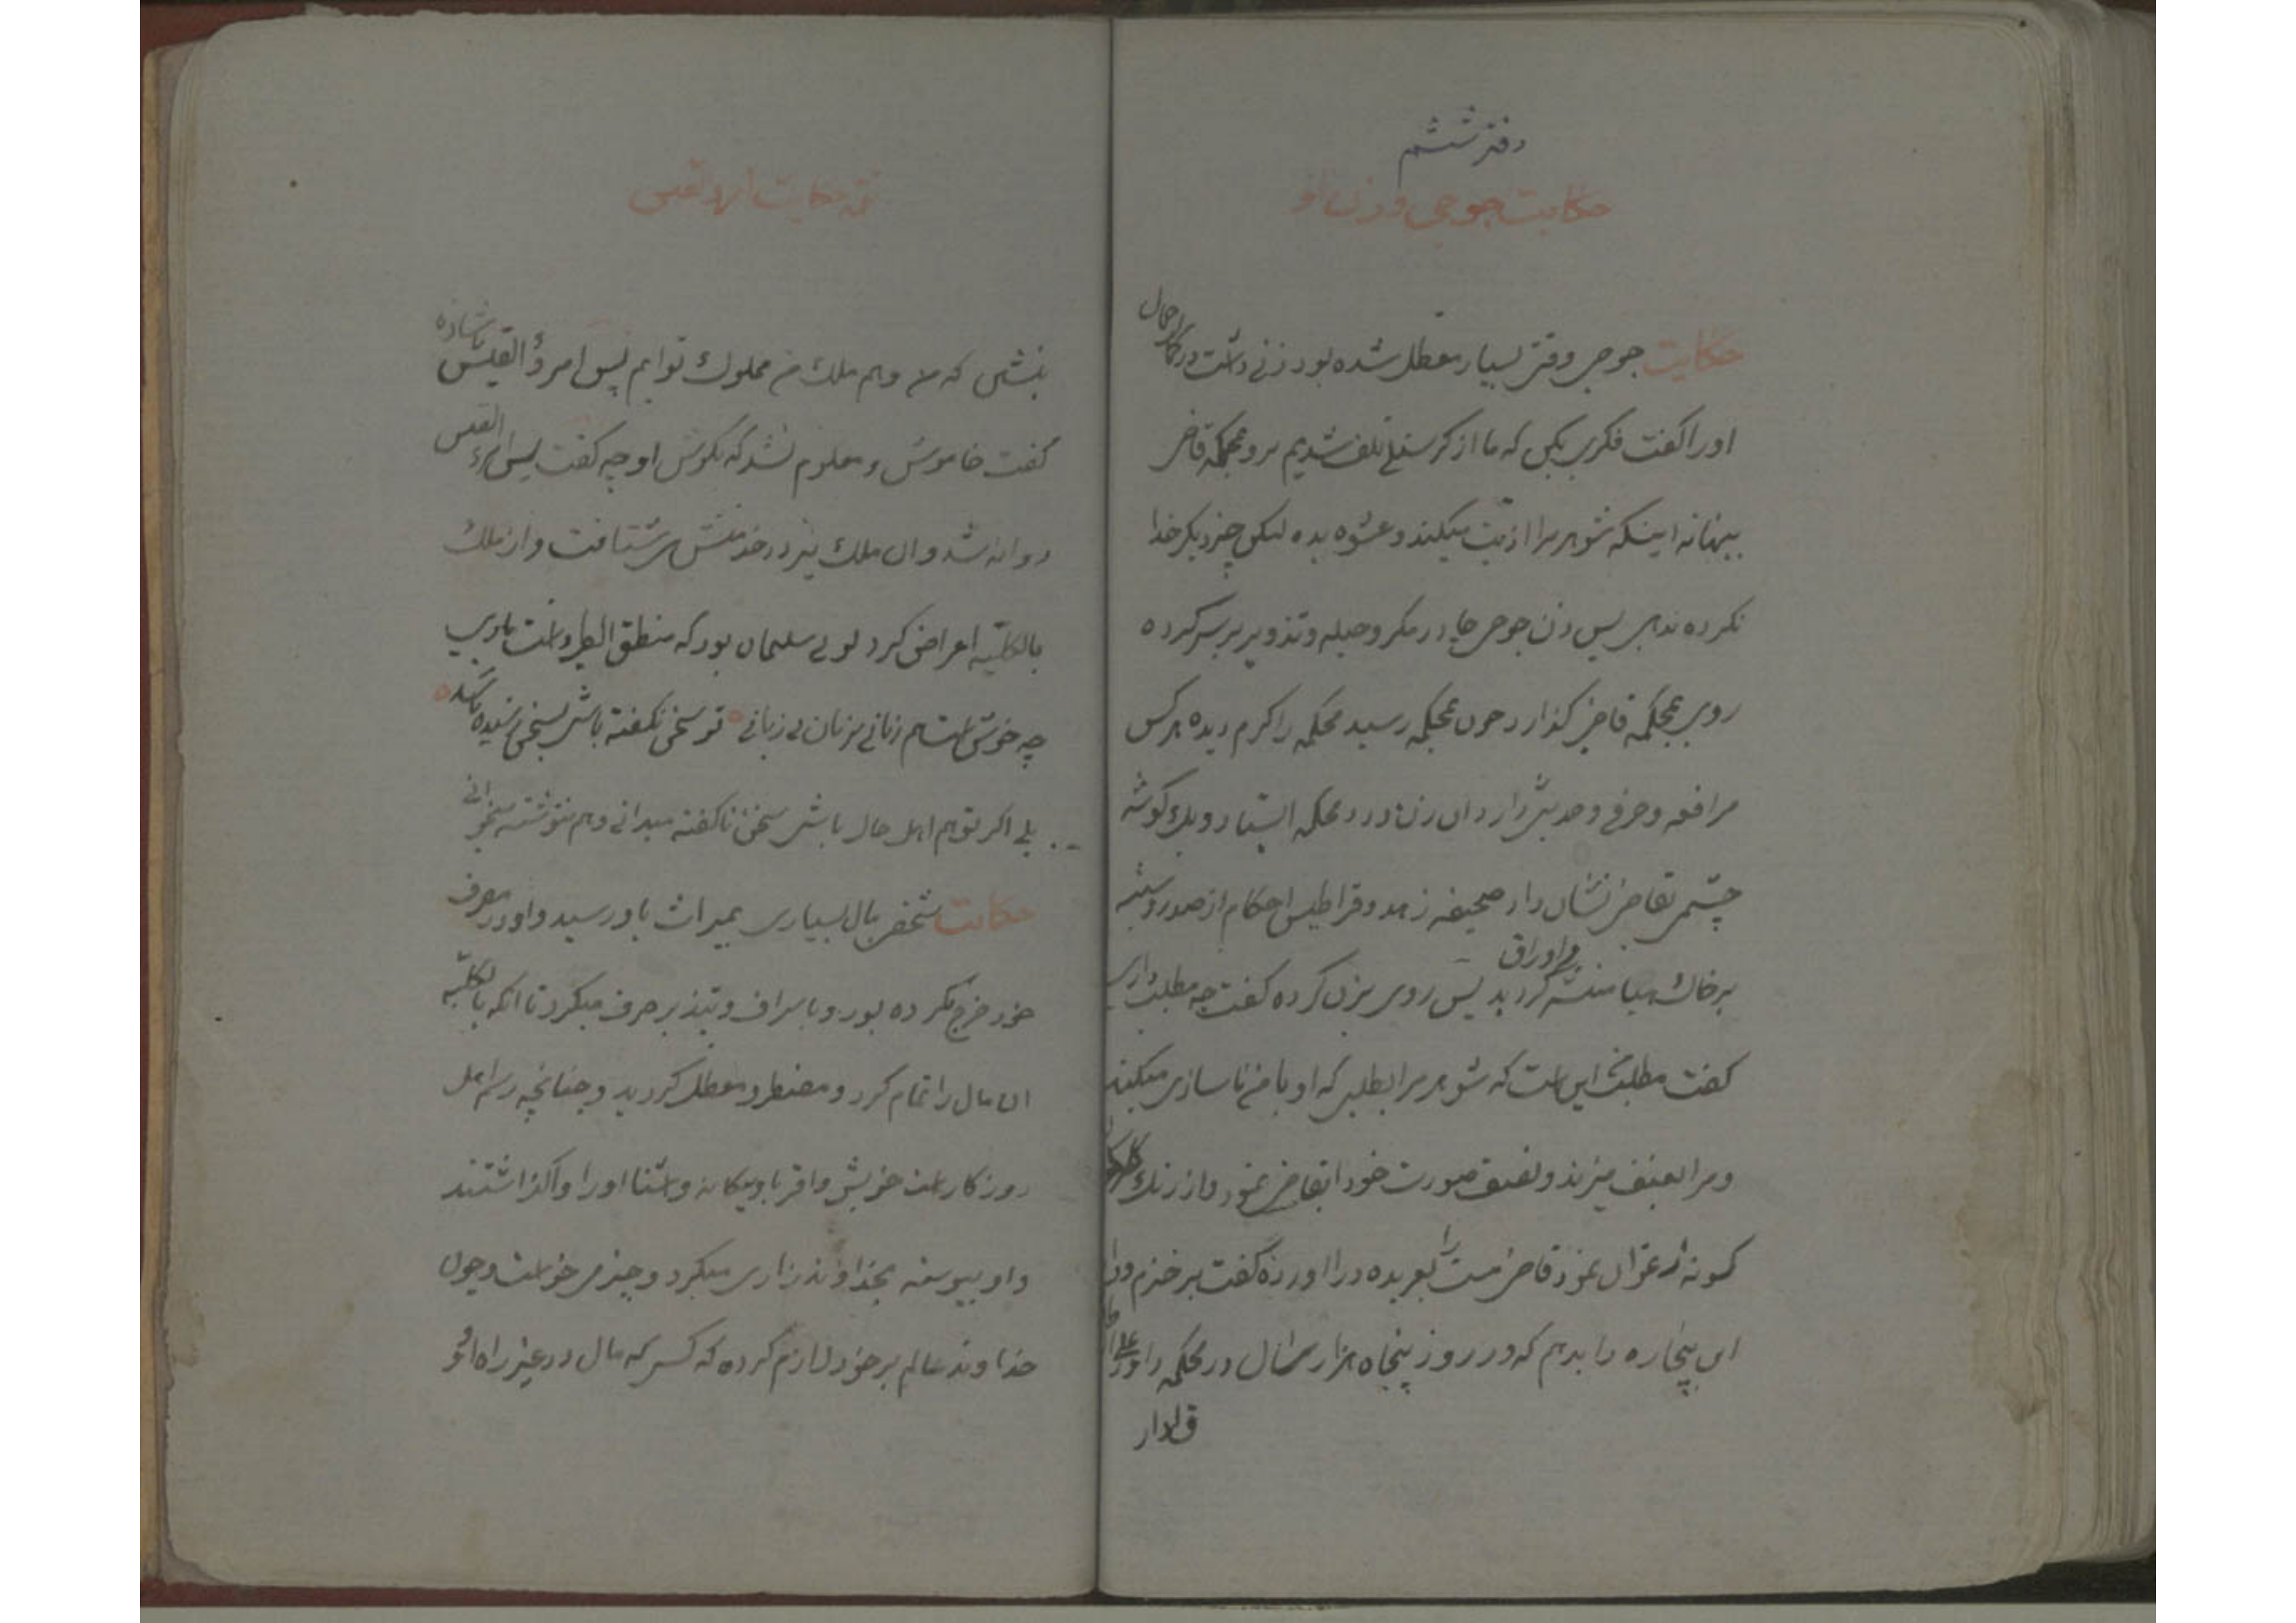 دفتر ششم
حکایت جوحی و زن او
حکایت جوحی وقتی بسیار معطل شده بود زنی داشت در کمال جمال
او را گفت فکری بکن که ما از گرسنگی تلف شدیم برو بمحکمه قاضی
ببهانه اینکه شوهر مرا اذیت میکند و عشوه بده لیکن چیز دیگر خدا
نکرده ندهی پس زن جوحی چادر مکر و حیله و تذویر بر سر کرده
روی بمحکمه قاضی گذارد چون بمحکمه رسید محکمه را گرم دیده هر کس
مرافعه و حرفی و حدیثی دارد آن زن در در محکمه ایستاد و یک گوشه
چشمی بقاضی نشان داد صحیفه زهد و قراطیس احکام از صدور
و اوراق
بر خاک هبا منثور گردید پس روی بزن کرده گفت چه مطلب داری
گفت مطلبم این است که شوهر مرا بطلبی که او با من ناسازی میکند
و مرا بعنف میزند و نصف صورت خود را بقاضی نمود و از رنگ
گونه ارغوان نمود قاضی مست را بعربده در آورد زن گفت برخیزم و
این بیچاره را بدهم که در روز پنجاه هزار سؤال در محکمه
ق لدار
تتمه حکایت امرء القیس
بنشین که من و هم ملک من مملوک توایم پس امرؤ القیس باشاره
گفت خاموش و معلوم نشد که بگوش او چه گفت پس امرء القیس
روانه شد و آن ملک نیز در خدمتش شتافت و از ملک
بالکلیه اعراض کرد لو بی سلیمان بود که منطق الطیر دانست باری
چه خوش است همزبانی بزبان بی زبانی تو سخن نگفته باشی بسخن رسیده باشد
بلی اگر تو هم اهل حال باشی سخن ناگفته میدانی و هم ننوشته میخوانی
حکایت شخصی مال بسیاری بمیراث باو رسید و او در مصرف
خود خرج نکرده بود و باسراف و تبذیر صرف میکرد تا آنکه بالکلیه
آن مال را تمام کرد و مضطر و معطل گردید و چنانچه رسم اهل
روزگار است خویش و اقربا و بیگانه و آشنا او را واگذاشتند
و او پیوسته بخداوند زاری میکرد و چیز می خواست و چون
خداوند عالم بر خود لازم کرده که کسی که مال در غیر راه او